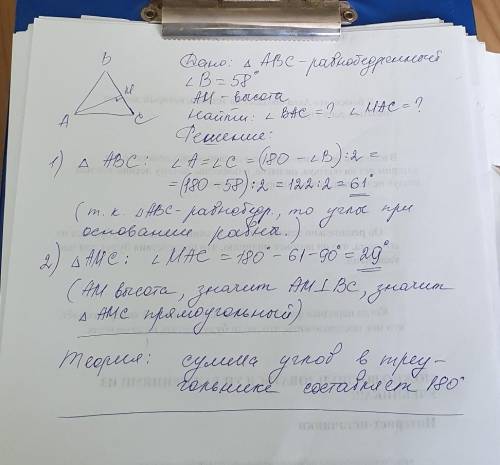 B
M
A
C
Дано: △ ABC - равнобедренный
∠B = 58°
AM - высота
Найти: ∠BAC = ? ∠MAC = ?
Решение:
1) △ ABC: ∠A = ∠C = (180 - ∠B) : 2 =
= (180 - 58) : 2 = 122 : 2 = 61°
(т.к. △ABC - равнобедр., то углы при
основании равны.)
2) △AMC: ∠MAC = 180° - 61 - 90° = 29°
(AM высота, значит AM⊥BC, значит
△ AMC прямоугольный)
Теория: сумма углов в треу-
гольнике составляет 180°